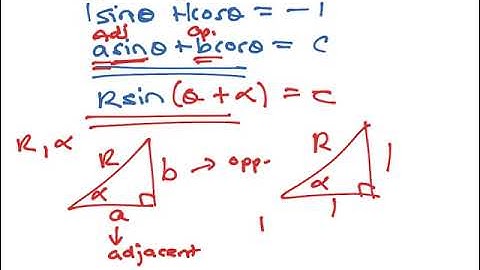 1sinθ + 1cosθ = -1
Adj op.
asinθ + bcosθ = c
Rsin(θ + α) = c
R, α
R α b → opp.
a
↓
adjacent
R α 1
1
1